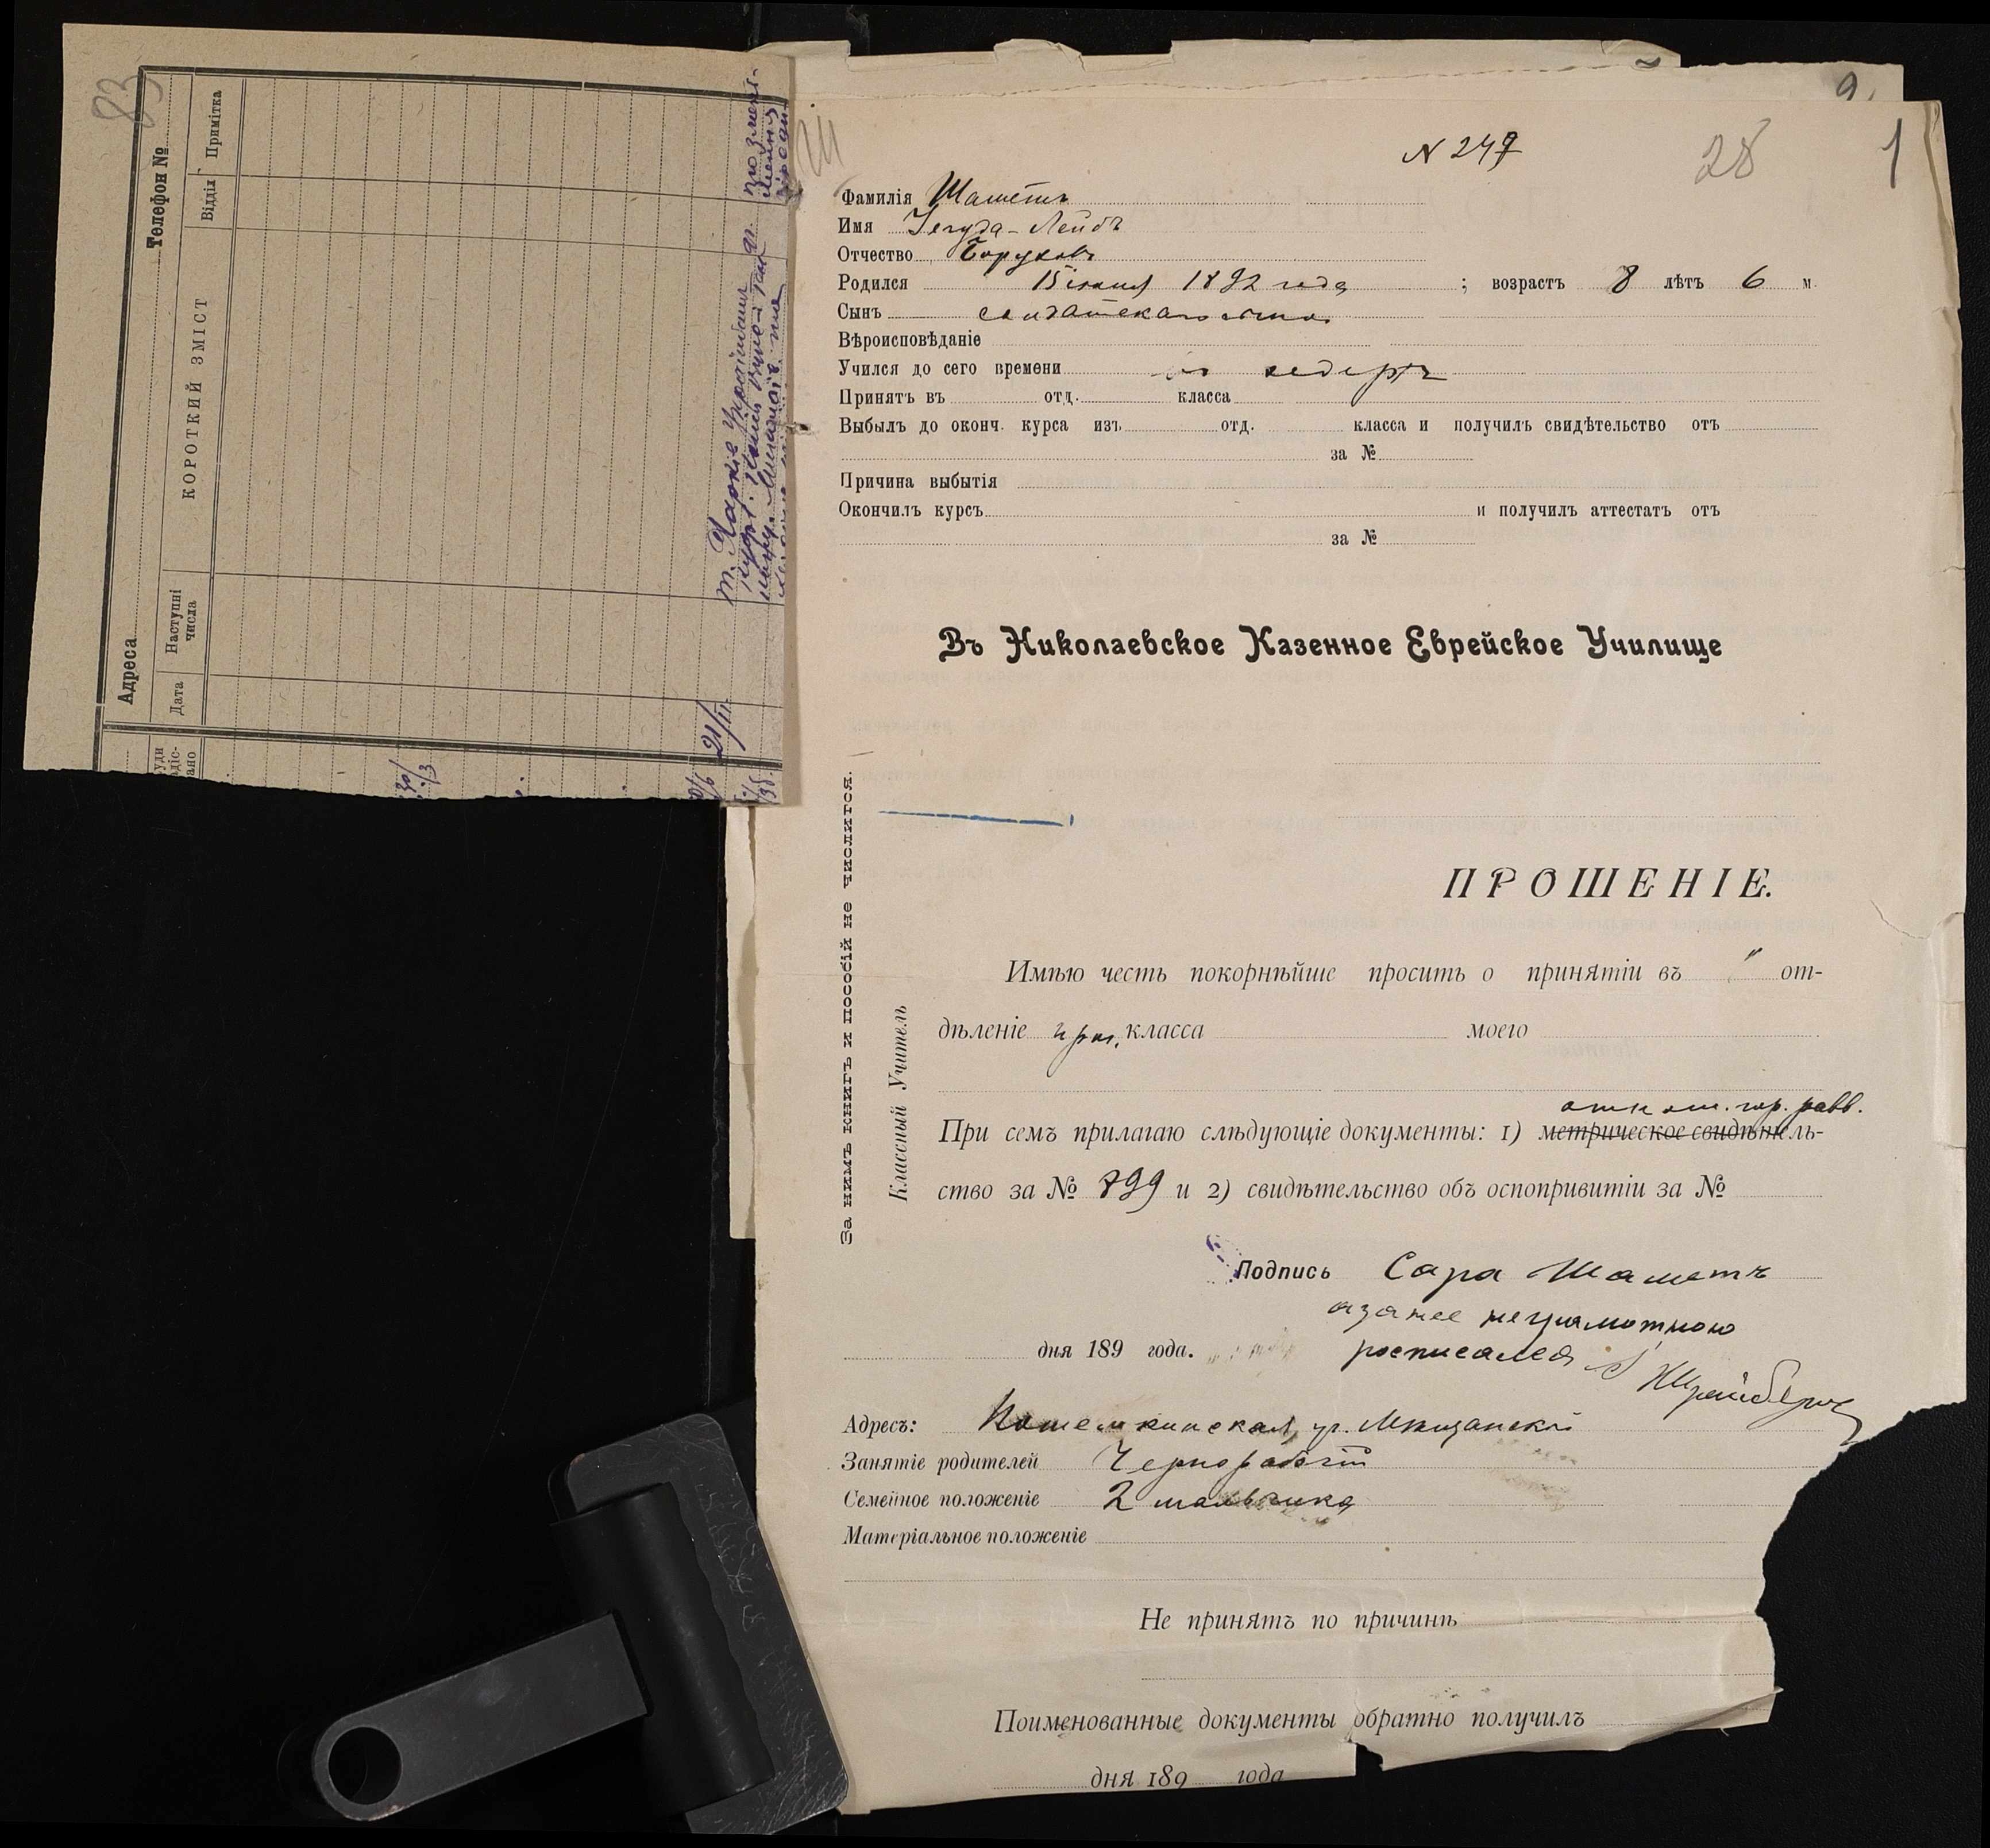 83
Адреса Телефон №
Дата Наступні числа КОРОТКИЙ ЗМІСТ Відділ Примітка
21/II
т. Харків
N 247
28
1
9
Фамилія Шаметъ
Имя Iегуда-Лейбъ
Отчество Боруховъ
Родился 15 іюня 1892 года ; возрастъ 8 лѣтъ 6 м.
Сынъ солдатскаго сына
Вѣроисповѣданіе
Учился до сего времени въ хедерѣ
Принятъ въ отд. класса
Выбылъ до оконч. курса изъ отд. класса и получилъ свидѣтельство отъ
за №
Причина выбытія
Окончилъ курсъ и получилъ аттестатъ отъ
за №
Въ Николаевское Казенное Еврейское Училище
ПРОШЕНІЕ.
Имѣю честь покорнѣйше просить о принятіи въ " от-
дѣленіе приг. класса моего
гор. равв.
При семъ прилагаю слѣдующіе документы: 1) метрическое свидѣтель-
ство за № 899 и 2) свидѣтельство объ оспопривитіи за №
Подпись Сара Шаметъ
а за нее неграмотною
дня 189 года. росписался Шрейберъ
Адресъ: Потемкинская ул.
Занятіе родителей Чернорабочій
Семейное положеніе 2 мальчика
Матеріальное положеніе
Не принятъ по причинѣ
Поименованные документы обратно получилъ
дня 189 года
За нимъ книгъ и пособій не числится.
Классный Учитель